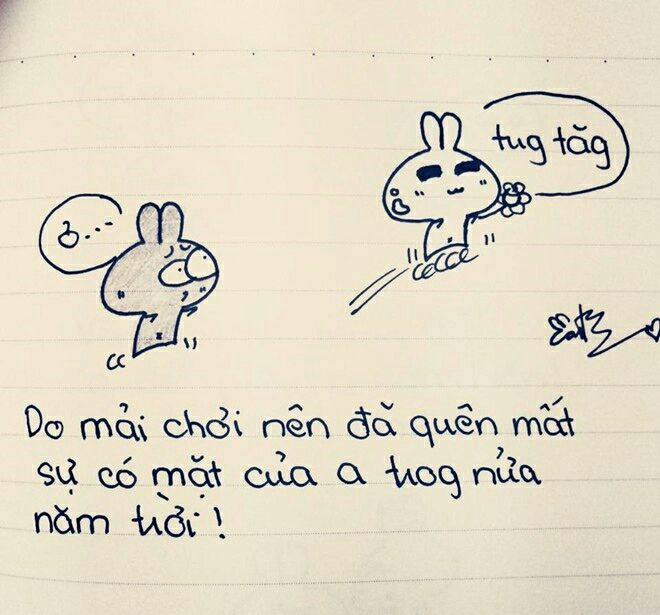 tug tăg
ơ...
Do mải chơi nên đã quên mất
sự có mặt của a trog nửa
năm trời!